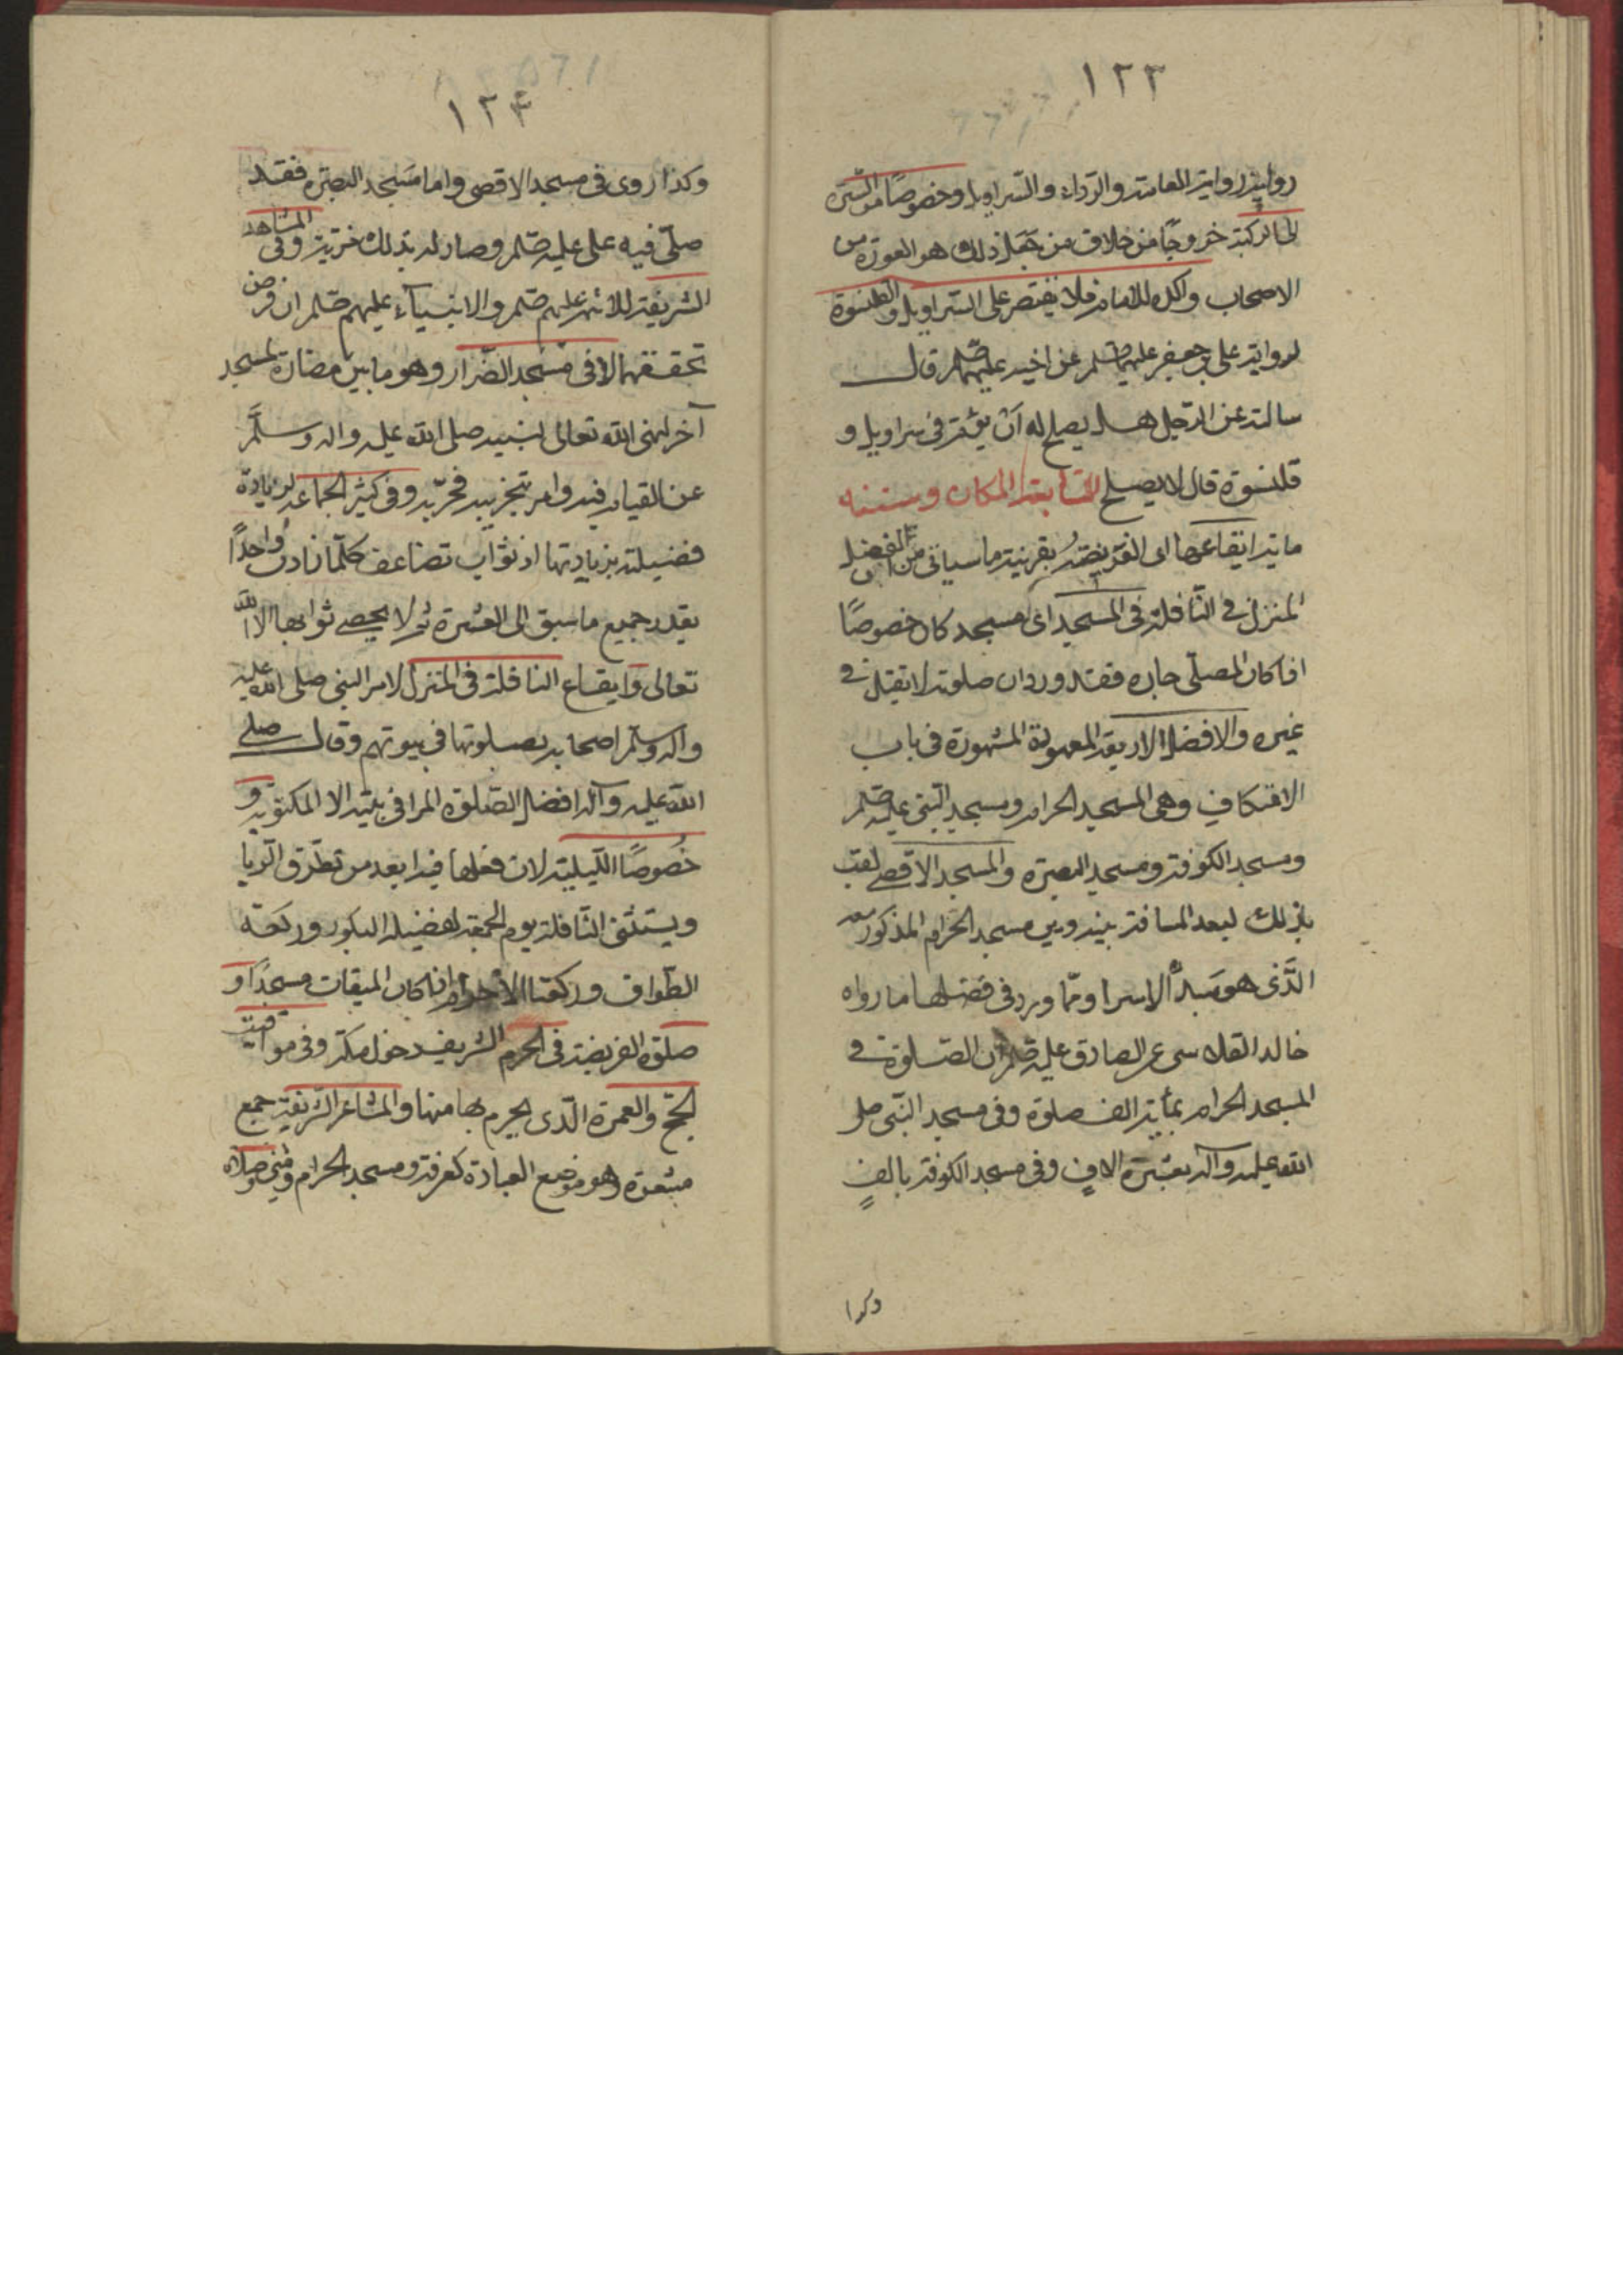 ١٢٣
رواية رواية العمامة والرداء والسراويل وخصوصًا من السرة
الى الركبة خروجًا من خلاف من جعل ذلك هو العورة من
الاصحاب واكد للامام فلا يقتصر على السراويل والقلنسوة
لرواية على بن جعفر عليهما صلم عن اخيه عليهما صلم قال
سالته عن الرجل هل يصلح له أن يؤم فى سراويل و
قلنسوة قال لا يصلح السابعة المكان وسننه
ماية ايقاعها اى الفريضة بقرينة ما سياتى من افضلية
المنزل فى النافلة فى المسجد اى مسجد كان خصوصًا
اذا كان المصلى جاره فقد ورد ان صلوته لا تقبل فى
غيره والافضل الاربعة المعهودة المشهورة فى باب
الاعتكاف وهى المسجد الحرام ومسجد النبى عليه صلم
ومسجد الكوفة ومسجد البصرة والمسجد الاقصى لقب
بذلك لبعد المسافة بينه وبين مسجد الحرام المذكور معه
الذى هو مبدأ الاسرا ومما ورد فى فضلها ما رواه
خالد القلانسى عن الصادق عليه صلم ان الصلوة فى
المسجد الحرام بمأية الف صلوة وفى مسجد النبى صلى
الله عليه وآله بعشرة الاف وفى مسجد الكوفة بالفٍ
وكذا
١٢٤
وكذا روى فى مسجد الاقصى واما مسجد البصره فقد
صلى فيه على عليه صلم وصار له بذلك مزية وفى المشاهد
الشريفة للائمة عليهم صلم والانبيآء عليهم صلم ان فرض
تحققها لا فى مسجد الضرار وهو ما بنى مضارة لمسجد
آخر لنهى الله تعالى لنبيه صلى الله عليه واله وسلم
عن القيام فيه وامر بتخريبه فخربه وفى كثير الجماعة لزيادة
فضيلته بزيادتها اذ ثواب تضاعف كلما زادت واحدًا
بقدر جميع ما سبق الى العشرة ثم لا يحصى ثوابها الا الله
تعالى وايقاع النافلة فى المنزل لامر النبى صلى الله عليه
واله وسلم اصحابه بصلوتها فى بيوتهم وقال صلى
الله عليه وآله افضل الصلوة المرا فى بيته الا المكتوبة و
خصوصًا الليلية لان فعلها فيه ابعد من تطرق الريا
ويستثنى النافلة يوم الجمعة لفضيلة البكور وركعة
الطواف وركعتا الاحرام اذا كان الميقات مسجدًا و
صلوة الفريضة فى الحرم الشريف حول مكة وفى مواقيت
الحج والعمرة الذى يحرم بها منها والمشاعر الشريفة جمع
مشعرة وهو موضع العبادة كعرفة ومسجد الحرام ومنى وصلاه